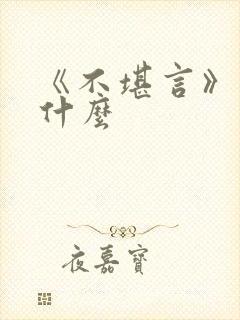 《不堪言》
什麼
夜嘉寶